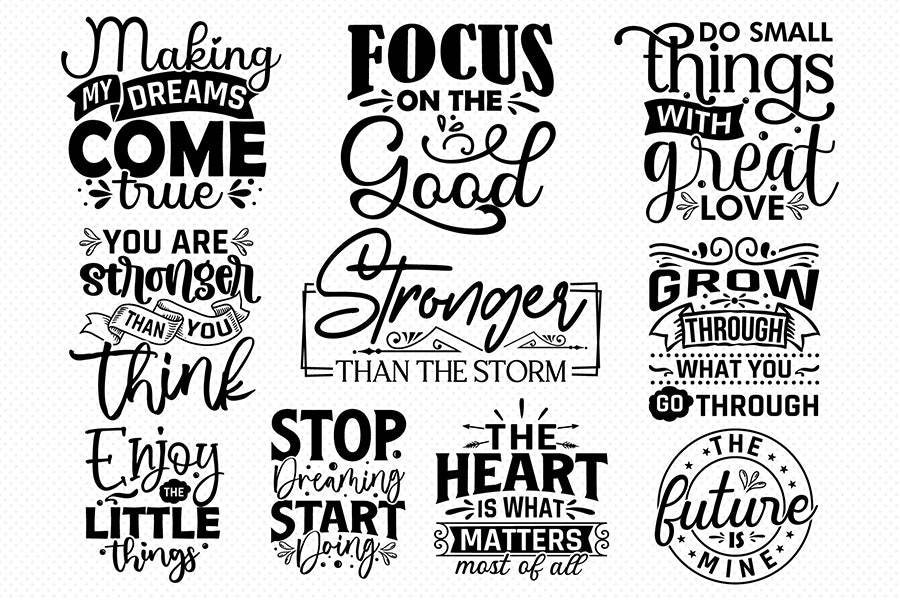 Making
MY DREAMS
COME
true
FOCUS
ON THE
Good
DO SMALL
things
WITH
great
LOVE
YOU ARE
stronger
THAN YOU
think
Stronger
THAN THE STORM
GROW
THROUGH
WHAT YOU
GO THROUGH
Enjoy
THE
LITTLE
things
STOP
Dreaming
START
Doing
THE
HEART
IS WHAT
MATTERS
most of all
THE
future
IS
MINE